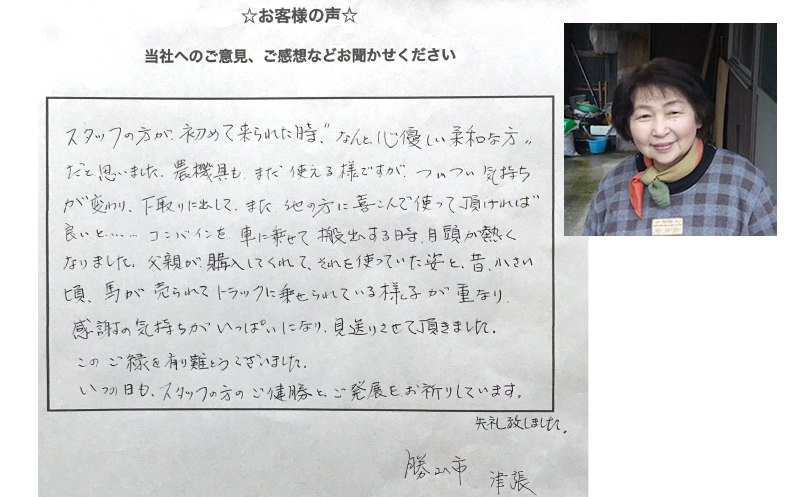 ☆お客様の声☆
当社へのご意見、ご感想などお聞かせください
スタッフの方が、初めて来られた時、"なんと心優しい柔和な方"
だと思いました。農機具も、まだ使える様ですが、ついつい気持ち
が変わり、下取りに出して、また他の方に喜こんで使って頂ければ
良いと…… コンバインを車に乗せて搬出する時、目頭が熱く
なりました。父親が購入してくれて、それを使っていた姿と、昔、小さい
頃、馬が売られてトラックに乗せられている様子が重なり、
感謝の気持ちがいっぱいになり、見送りさせて頂きました。
このご縁を有り難とうございました。
いつの日も、スタッフの方のご健勝と、ご発展をお祈りしています。
失礼致しました。
勝山市 津張